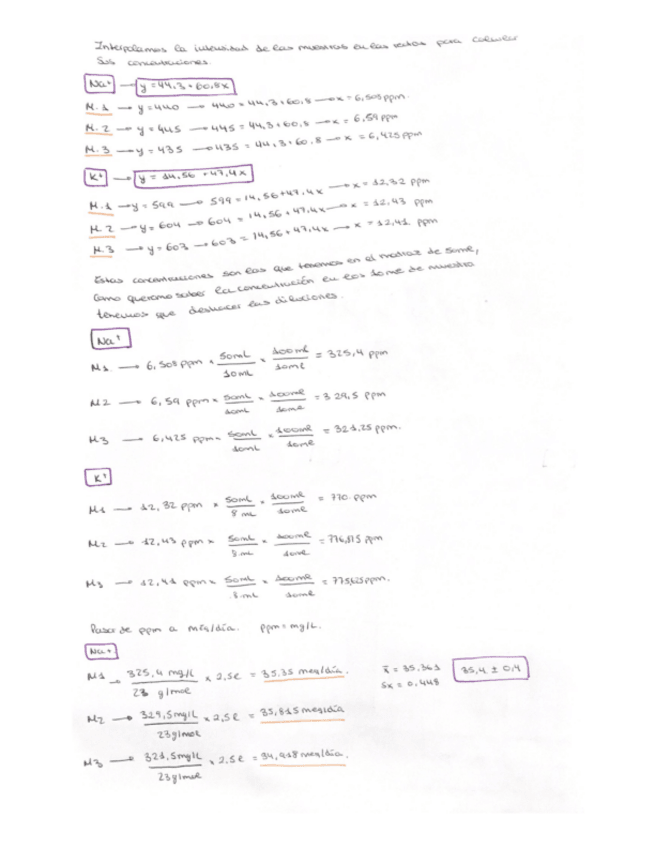 Interpolamos la intensidad de las muestras en las rectas para calcular
sus concentraciones.
Na⁺ → y = 44,3 + 60,8x
M.1 → y = 440 → 440 = 44,3 + 60,8 → x = 6,508 ppm.
M.2 → y = 445 → 445 = 44,3 + 60,8 → x = 6,59 ppm
M.3 → y = 435 → 435 = 44,3 + 60,8 → x = 6,425 ppm
K⁺ → y = 14,56 + 47,4x
M.1 → y = 599 → 599 = 14,56 + 47,4x → x = 12,32 ppm
M.2 → y = 604 → 604 = 14,56 + 47,4x → x = 12,43 ppm
M.3 → y = 603 → 603 = 14,56 + 47,4x → x = 12,41 ppm
Estas concentraciones son las que tenemos en el matraz de 50ml,
como queremos saber la concentración en los 10ml de muestra
tenemos que deshacer las diluciones.
Na⁺
M1 → 6,508 ppm × 50mL/10mL × 100ml/10ml = 325,4 ppm
M2 → 6,59 ppm × 50mL/10mL × 100ml/10ml = 329,5 ppm
M3 → 6,425 ppm × 50mL/10mL × 100ml/10ml = 321,25 ppm.
K⁺
M1 → 12,32 ppm × 50mL/8mL × 100ml/10ml = 770 ppm
M2 → 12,43 ppm × 50mL/8mL × 100ml/10ml = 776,875 ppm
M3 → 12,41 ppm × 50mL/8mL × 100ml/10ml = 775,625 ppm.
Pasar de ppm a mEq/día. ppm = mg/L.
Na+
M1 → 325,4 mg/L / 23 g/mol × 2,5l = 35,35 meq/día. x̄ = 35.361 35,4 ± 0,4
sx = 0,448
M2 → 329,5 mg/L / 23 g/mol × 2,5l = 35,815 meq/día
M3 → 321,5 mg/L / 23 g/mol × 2,5l = 34,918 meq/día.